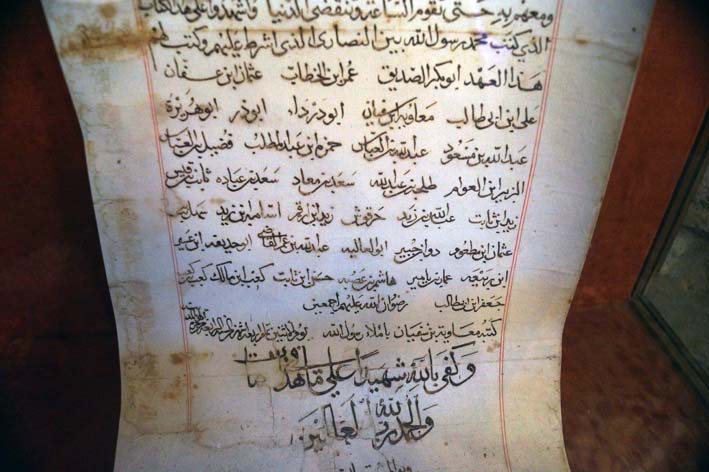 ومعهم به حتى تقوم الساعة وتنقضي الدنيا وشهدوا على هذا الكتاب
الذي كتب محمد رسول الله بين النصارى الذي اشرط عليهم وكتب لهم
هذا العهد ابو بكر الصديق عمر ابن الخطاب عثمان ابن عفان
علي ابن ابي طالب معاوية ابن سفيان ابو دردا ابو ذر ابو هريرة
عبد الله بن مسعود عبد الله بن العباس حمزه ابن عبد المطلب فضيل ابن العباس
الزبير ابن العوام طلحه بن عبد الله سعد بن معاد سعد بن عباده ثابت بن قيس
زيد ابن ثابت عبد الله بن زيد زيد ابن ارقم اسامه ابن زيد
عثمان ابن ابو العاليه عبد الله بن
ابن ربيعه هاشم بن حسان ابن ثابت كعب ابن مالك كعب
جعفر ابن ابي طالب رضوان الله عليهم اجمعين
كتبه معاوية بن سفيان باملاء رسول الله
وكفى بالله شهيدا على ما هذا
والحمد لله رب العالمين